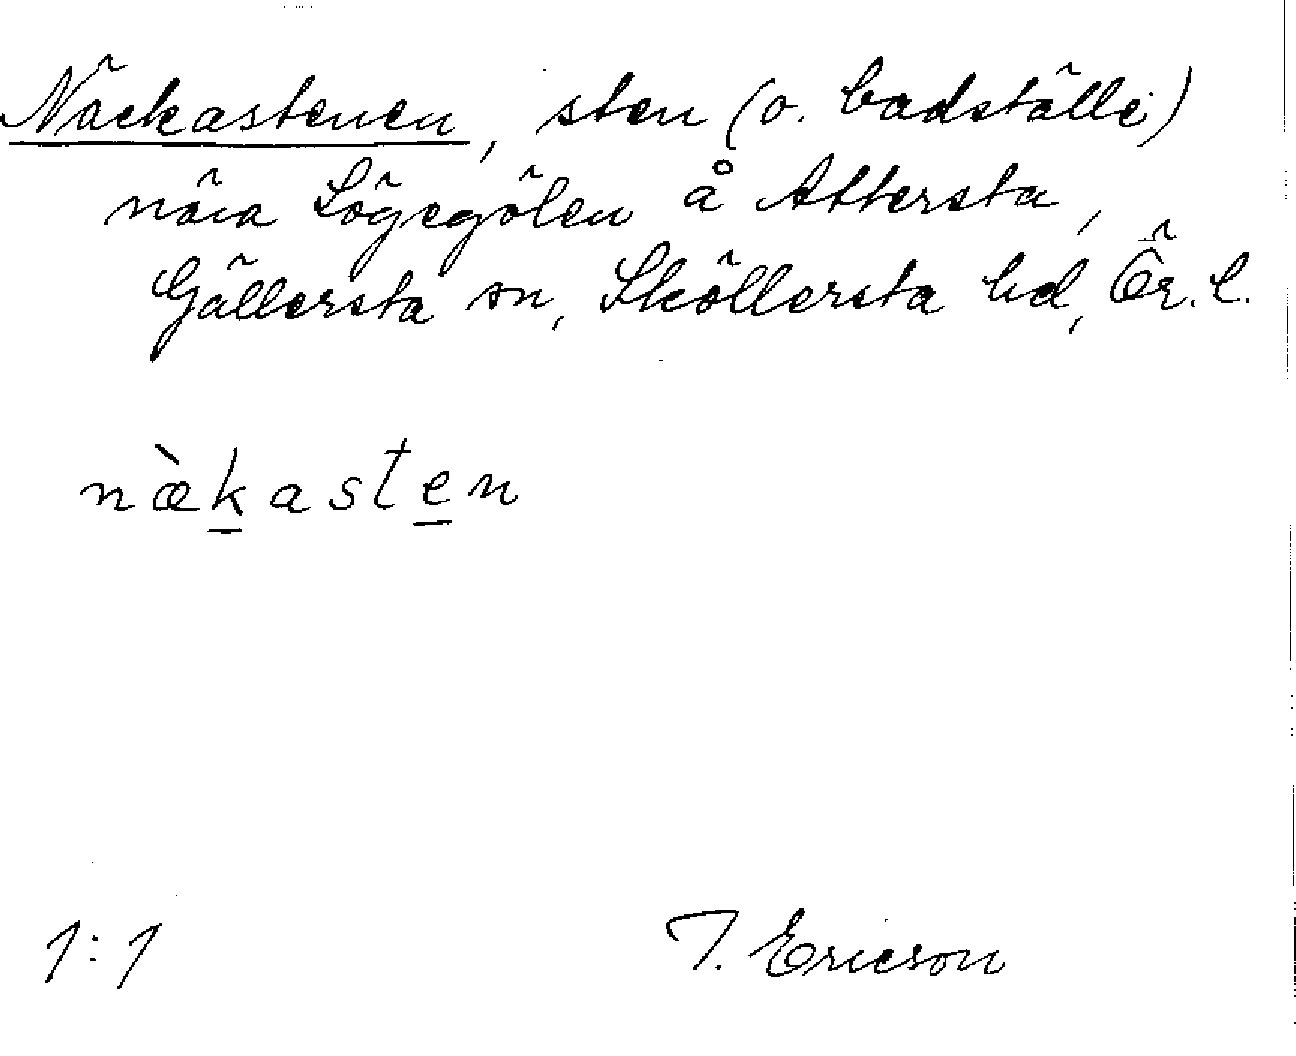 Näckastenen, sten (o. badställe)
nära Lögegölen å Attersta,
Gällersta sn, Sköllersta hd, Ör. l.
nækasten
1:1
T. Ericson